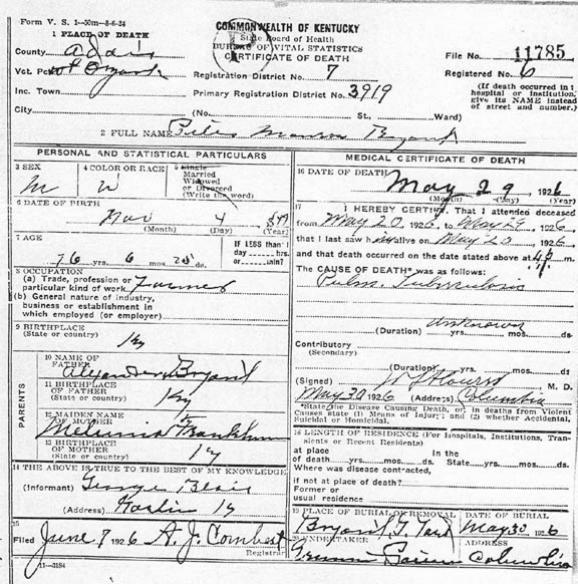 Form V. S. 1—50m—8-6-24
COMMONWEALTH OF KENTUCKY
State Board of Health
BUREAU OF VITAL STATISTICS
CERTIFICATE OF DEATH
1 PLACE OF DEATH
County Adair
Vct. Pct. Ozark
File No. 11785
Registration District No. 7
Registered No. 6
Inc. Town
Primary Registration District No. 3919
(If death occurred in a hospital or institution, give its NAME instead of street and number.)
City (No. St., Ward)
2 FULL NAME Monroe Bryant
PERSONAL AND STATISTICAL PARTICULARS
3 SEX
M
4 COLOR OR RACE
W
5 Single
Married
Widowed
or Divorced
(Write the word)
6 DATE OF BIRTH
Nov 4
(Month) (Day) (Year)
7 AGE
76 6
ds.
IF LESS than 1
day hrs.
or min?
8 OCCUPATION
(a) Trade, profession or
particular kind of work. Farmer
(b) General nature of industry,
business or establishment in
which employed (or employer)
9 BIRTHPLACE
(State or country) Ky
PARENTS
10 NAME OF
FATHER
Alexander Bryant
11 BIRTHPLACE
OF FATHER
(State or country) Ky
12 MAIDEN NAME
OF MOTHER
13 BIRTHPLACE
OF MOTHER
(State or country) Ky
14 THE ABOVE IS TRUE TO THE BEST OF MY KNOWLEDGE
(Informant) George Blair
(Address) Ky
15
Filed June 7 1926 A. J. Combest
Registrar
11—3184
MEDICAL CERTIFICATE OF DEATH
16 DATE OF DEATH
May 29, 1926
(Month) (Day) (Year)
17 I HEREBY CERTIFY, That I attended deceased
from May 20 1926, to May 29, 1926
that I last saw h alive on May 1926
and that death occurred on the date stated above at
The CAUSE OF DEATH* was as follows:
Pulm. Tuberculosis
unknown
(Duration) yrs. mos. ds.
Contributory
(Secondary)
(Duration) yrs. mos. ds.
(Signed) M. D.
May 30 1926 (Address) Columbia
*State the Disease Causing Death, or, in deaths from Violent
Causes state (1) Means of Injury; and (2) whether Accidental,
Suicidal or Homicidal.
18 LENGTH OF RESIDENCE (For Hospitals, Institutions, Transients or Recent Residents)
at place In the
of death yrs. mos. ds. State yrs. mos. ds.
Where was disease contracted,
if not at place of death?
Former or
usual residence
19 PLACE OF BURIAL OR REMOVAL
Bryant G. Yard
DATE OF BURIAL
May 30 1926
20 UNDERTAKER
ADDRESS
Columbia